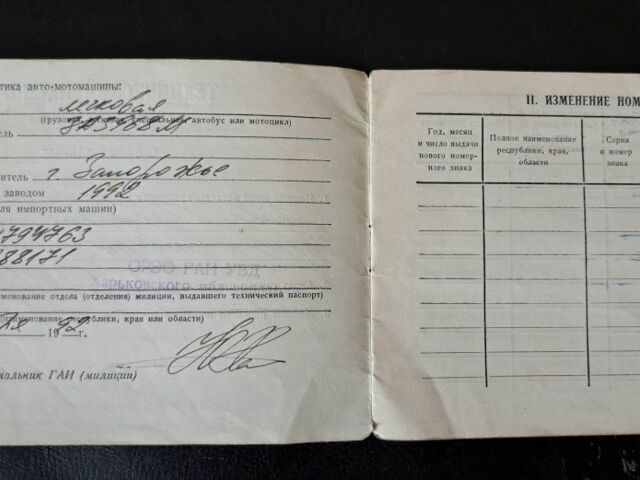 тика авто-мотомашины:
легковая
(грузовая, легковая, специальная, автобус или мотоцикл)
ель ЗАЗ968М
итель г. Запорожье
заводом 1992
ля импортных машин)
794763
88171
ОРЭО ГАИ УВД
Харьковского
именование отдела (отделения) милиции, выдавшего технический паспорт)
(наименование республики, края или области)
19 92 г.
чальник ГАИ (милиции)
II. ИЗМЕНЕНИЕ НОМ
Год, месяц и число выдачи нового номерного знака
Полное наименование республики, края, области
Серия и номер знака